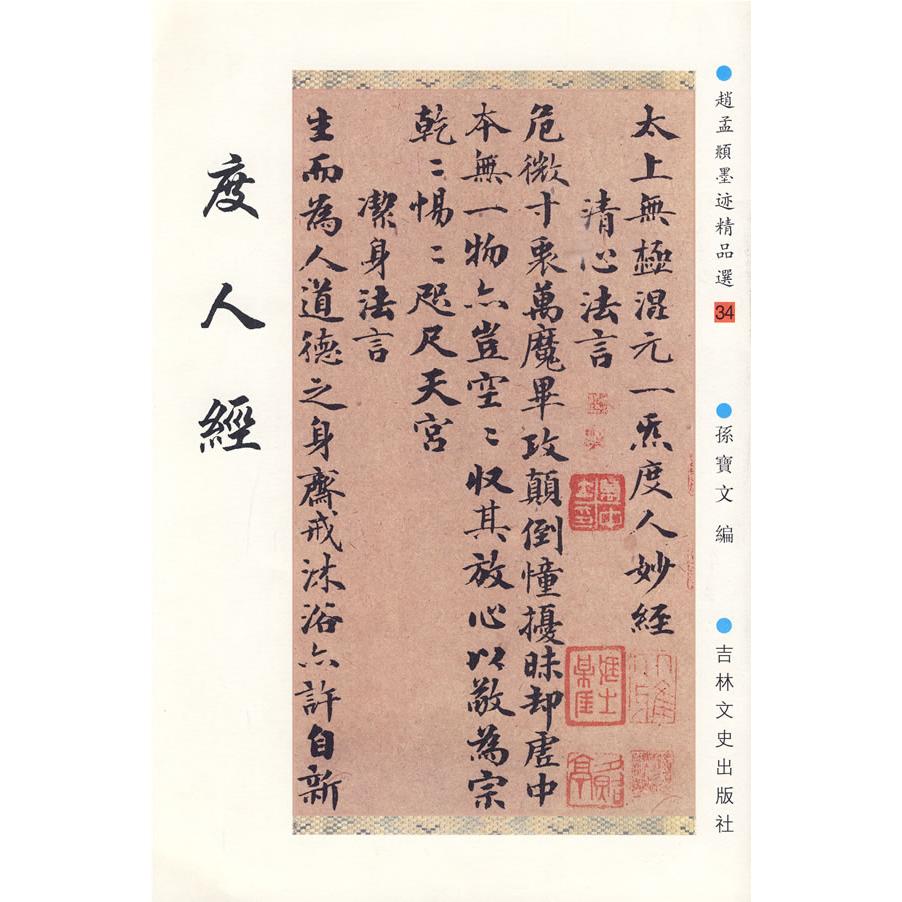 趙孟頫墨迹精品選 34
孫寶文 編
吉林文史出版社
太上無極混元一炁度人妙經
清心法言
危微寸衷萬魔畢攻顛倒憧擾昧却虚中
本無一物亦豈空〻收其放心以敬為宗
乾〻惕〻咫尺天宮
潔身法言
生而為人道德之身齋戒沐浴亦許自新
度人經